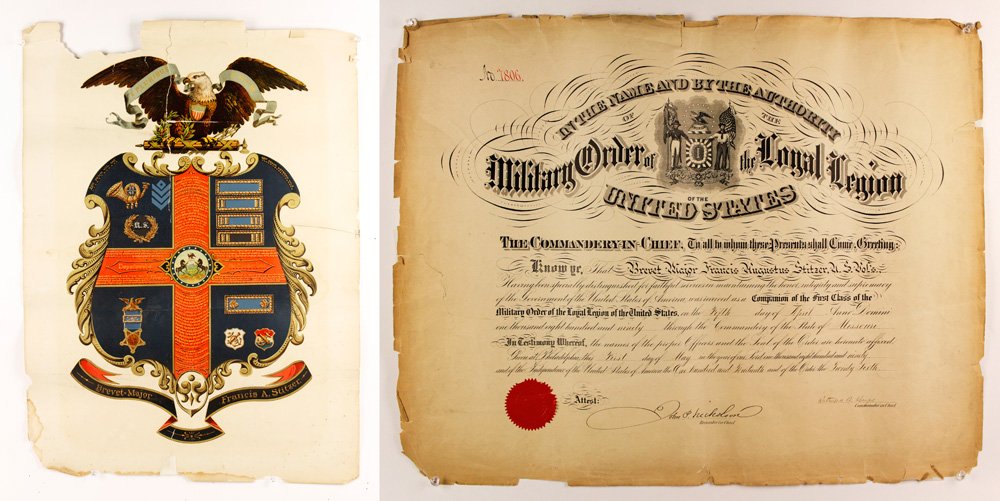 U.S.
Brevet-Major
Francis A. Stitzer.
No. 7806.
IN THE NAME AND BY THE AUTHORITY
OF THE
Military Order of the Loyal Legion
OF THE
UNITED STATES
THE COMMANDERY-IN-CHIEF, To all to whom these Presents shall Come, Greeting:
Know ye, That Brevet Major Francis Augustus Stitzer U.S. Vols.
Having been specially distinguished for faithful services in maintaining the honor, integrity and supremacy
of the Government of the United States of America, was received as a Companion of the First Class of the
Military Order of the Loyal Legion of the United States, on the day of April Anno Domini
one thousand eight hundred and ninety through the Commandery of the State of Missouri.
In Testimony Whereof, the names of the proper Officers and the Seal of the Order are hereunto affixed.
Given at Philadelphia, this First day of May in the year of our Lord one thousand eight hundred and ninety
and of the Independence of the United States of America the One Hundred and and of the Order the Twenty Sixth.
Attest:
John P. Nicholson
Recorder in Chief
Commander in Chief